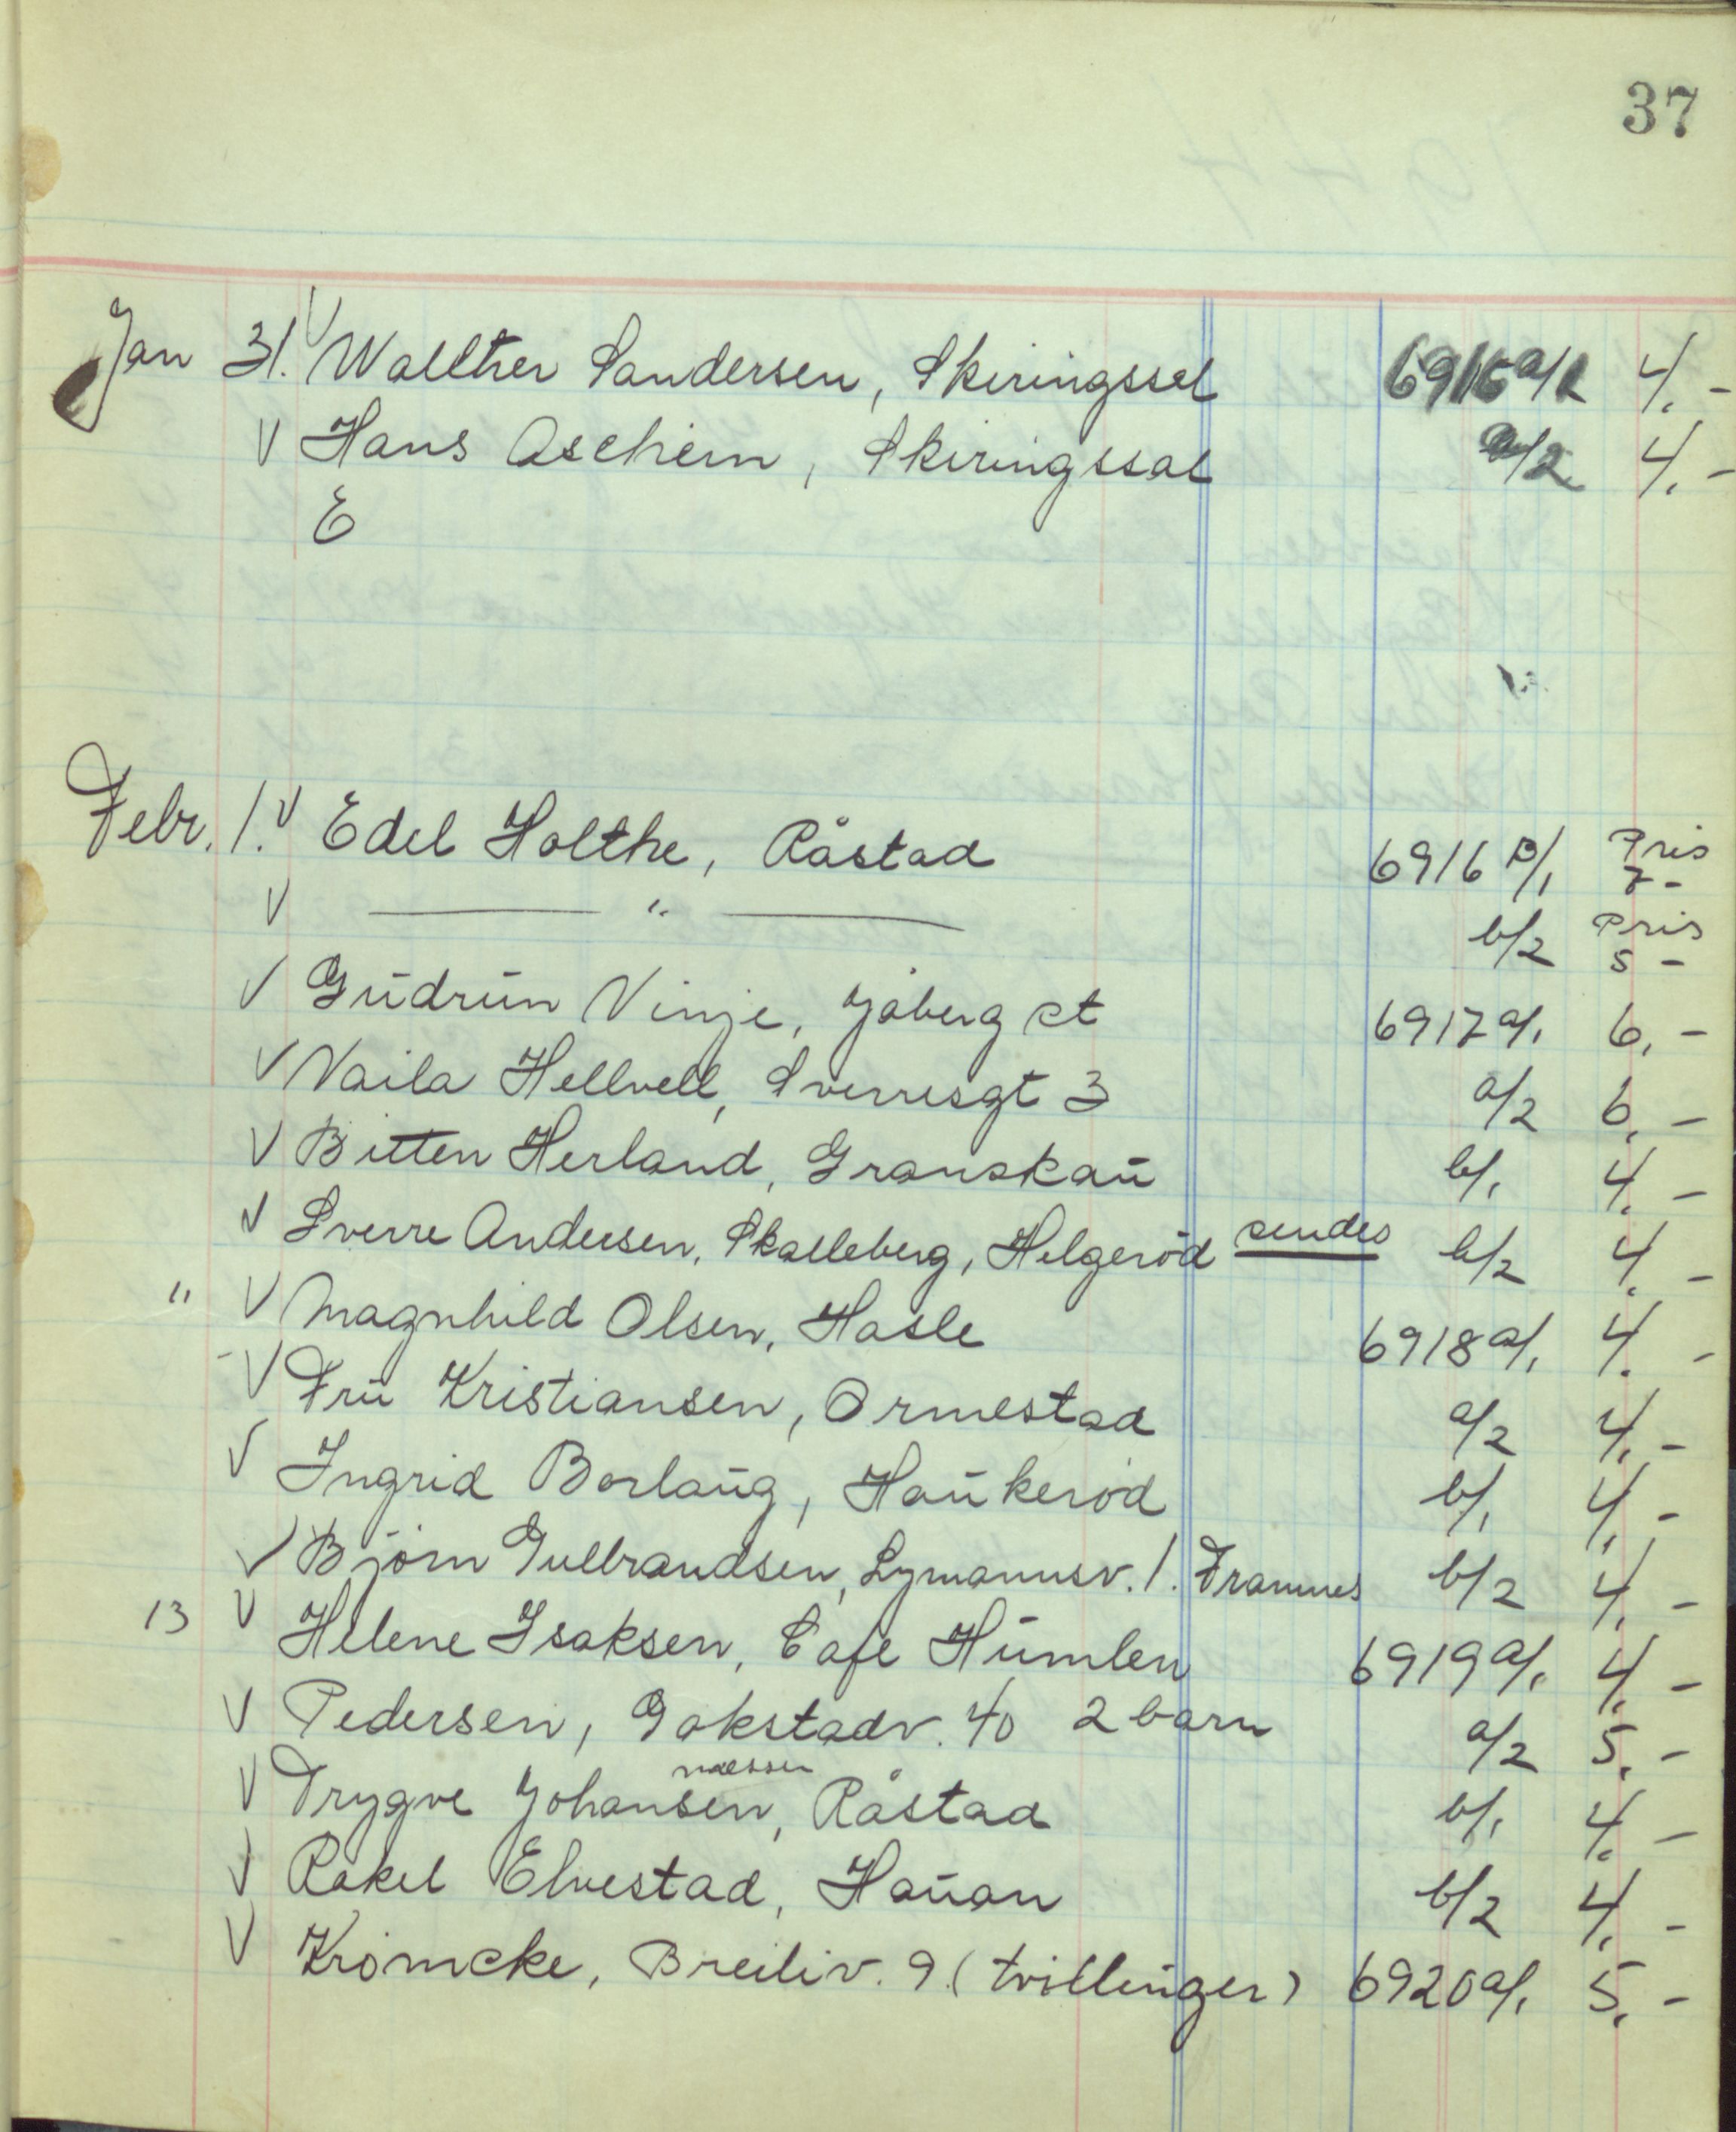 37
Jan 31. V Wallther Sandersen, Skiringssal 6915 a/1 4.-
V Hans Ascheim, Skiringssal a/2 4.-
E
Febr. 1. V Edel Holthe, Råstad 6916 B/1 Pris 7-
V — " — b/2 Pris 5-
V Gudrun Vinje, Jåberg st 6917 a/1 6,-
V Naila Hellvell, Sverresgt 3 a/2 6,-
V Bitten Herland, Granskau b/1 4.-
V Sverre Andersen, Skalleberg, Helgeröd sendes b/2 4.-
" V Magnhild Olsen, Hasle 6918 a/1 4.-
V Fru Kristiansen, Ormestad a/2 4,-
V Ingrid Borlaug, Haukeröd b/1 4,-
V Björn Gulbrandsen, Lymannsv. 1. Framnes b/2 4,-
13 V Helene Isaksen, Cafe Humlen 6919 a/1 4,-
V Pedersen, Gokstadv. 40 2 barn a/2 5,-
V Trygve Johansen, Råstad b/1 4.-
V Rakel Elvestad, Hauan b/2 4,-
V Krömcke, Breiliv. 9. (tvillinger) 6920 a/1 5,-